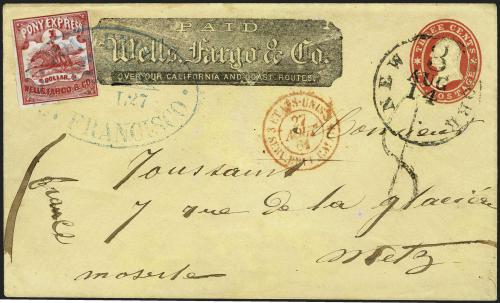 PONY EXPRESS
1
DOLLAR.
WELLS, FARGO & CO.
PAID
Wells, Fargo & Co.
OVER OUR CALIFORNIA AND COAST ROUTES.
THREE CENTS
POSTAGE
NEW
3
AUG
14
27
FRANCISCO
3 ETATS-UNIS
27
AOUT
61
Monsieur
Toussaint
7 rue de la glacière
Metz
moselle
France